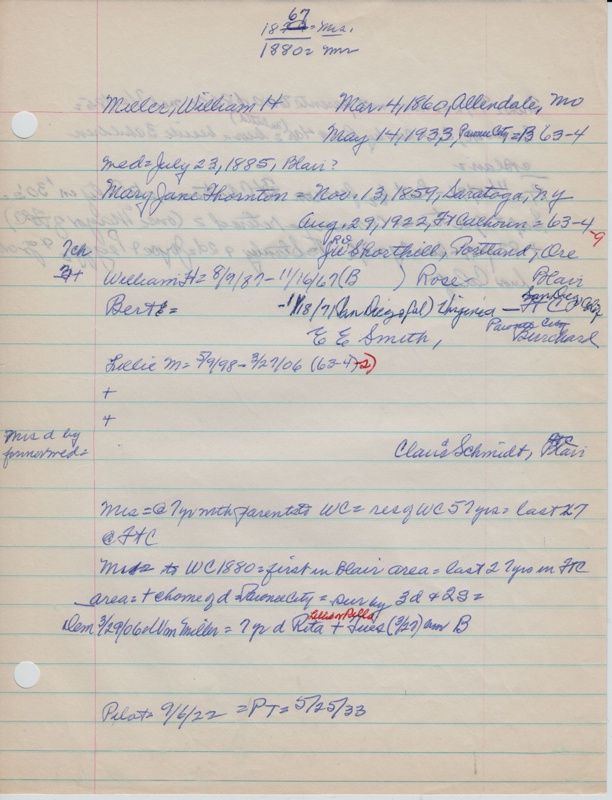 67
18 = Mrs.
1880 = Mr
Miller, William H Mar. 4, 1860, Allendale, Mo
May 14, 1933, Pawnee City = B 63-4
Med = July 23, 1885, Blair?
Mary Jane Thornton = Nov. 13, 1859, Saratoga, Ny
Aug. 29, 1922, Ft Calhoun = 63-4-9
7ch Porthill, Portland, Ore
William H = 8/9/87 - 11/16/67 (B ) Rose Blair
Bert = -1/18/7 (San Diego Cal) Virginia - San Diego Calif
Pawnee City
E E Smith, Burchard
Lillie M = 5/9/98 - 3/27/06 (63-4-2)
+
+
Mrs d by
former med =
Claire Schmidt, Blair
Mrs = @ 7yr with parents to WC = res of WC 57yrs = last 27
@ FtC
Mr = to WC 1880 = first in Blair area = last 27yrs in FtC
area = + @ home of d = Pawnee City = sur by 3d & 2S =
Dem 3/29/06 = Wm Miller = 7yr d Rita + Tues (3/27) bur B
Lillian Rilla
Pilot = 9/6/22 = PT = 5/25/33